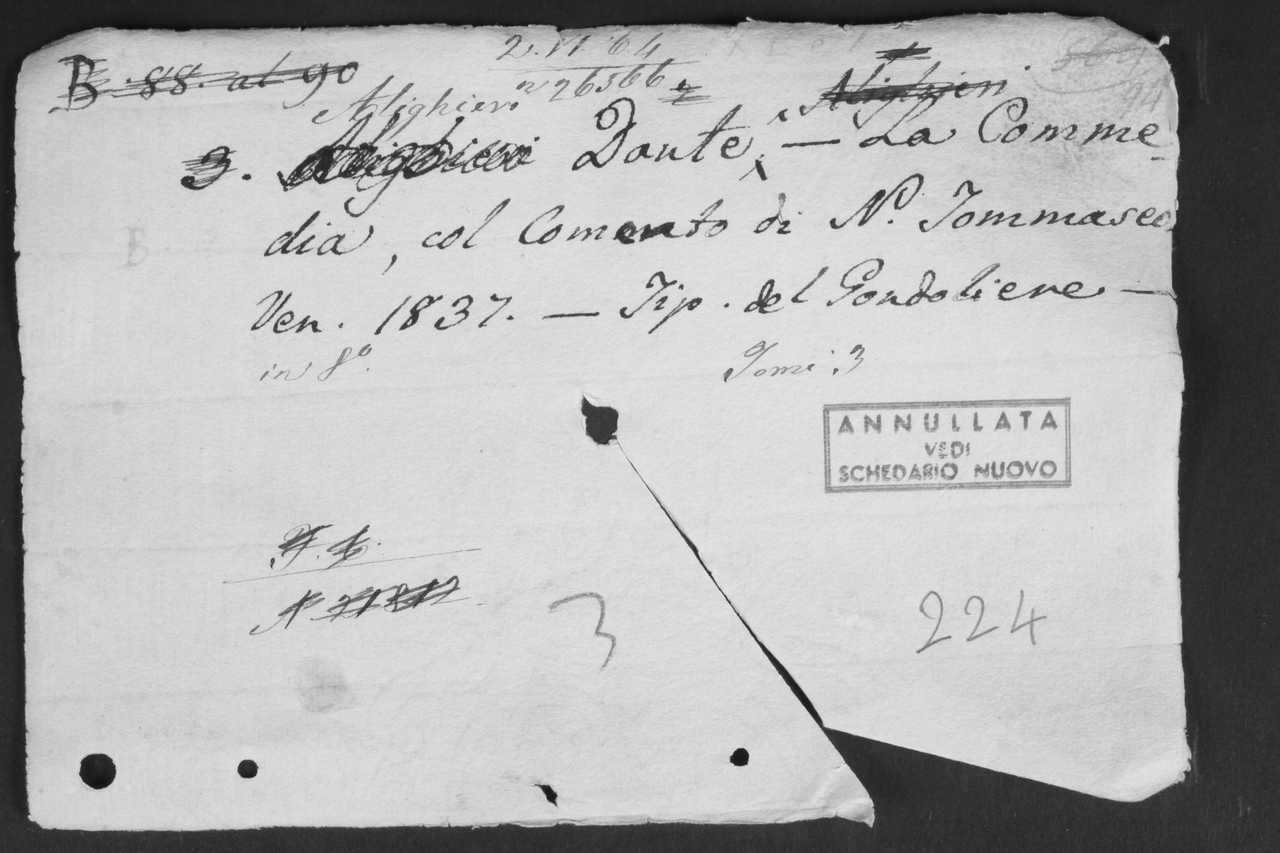 B 88. al 90
2. 11 64
226566
Alighieri
Alighieri
3. Alighieri Dante, — La Comme-
dia, col Comento di N. Tommaseo
Ven. 1837. — Tip. del Gondoliere —
in 8º. Tomi 3
ANNULLATA
VEDI
SCHEDARIO NUOVO
B
3
224